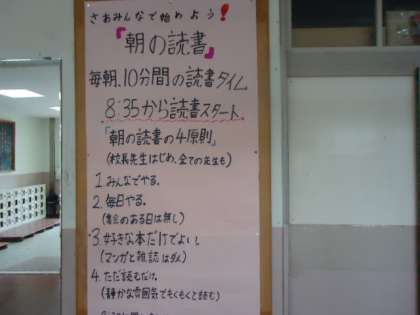 さあみんなで始めよう!
『朝の読書』
毎朝、10分間の読書タイム
8:35から読書スタート
「朝の読書の4原則」
(校長先生はじめ、全ての先生も)
1. みんなでやる。
2. 毎日やる。
(集会のある日は無し)
3. 好きな本だけでよい。
(マンガと雑誌はダメ)
4. ただ読むだけ。
(静かな雰囲気でもくもくと読む)